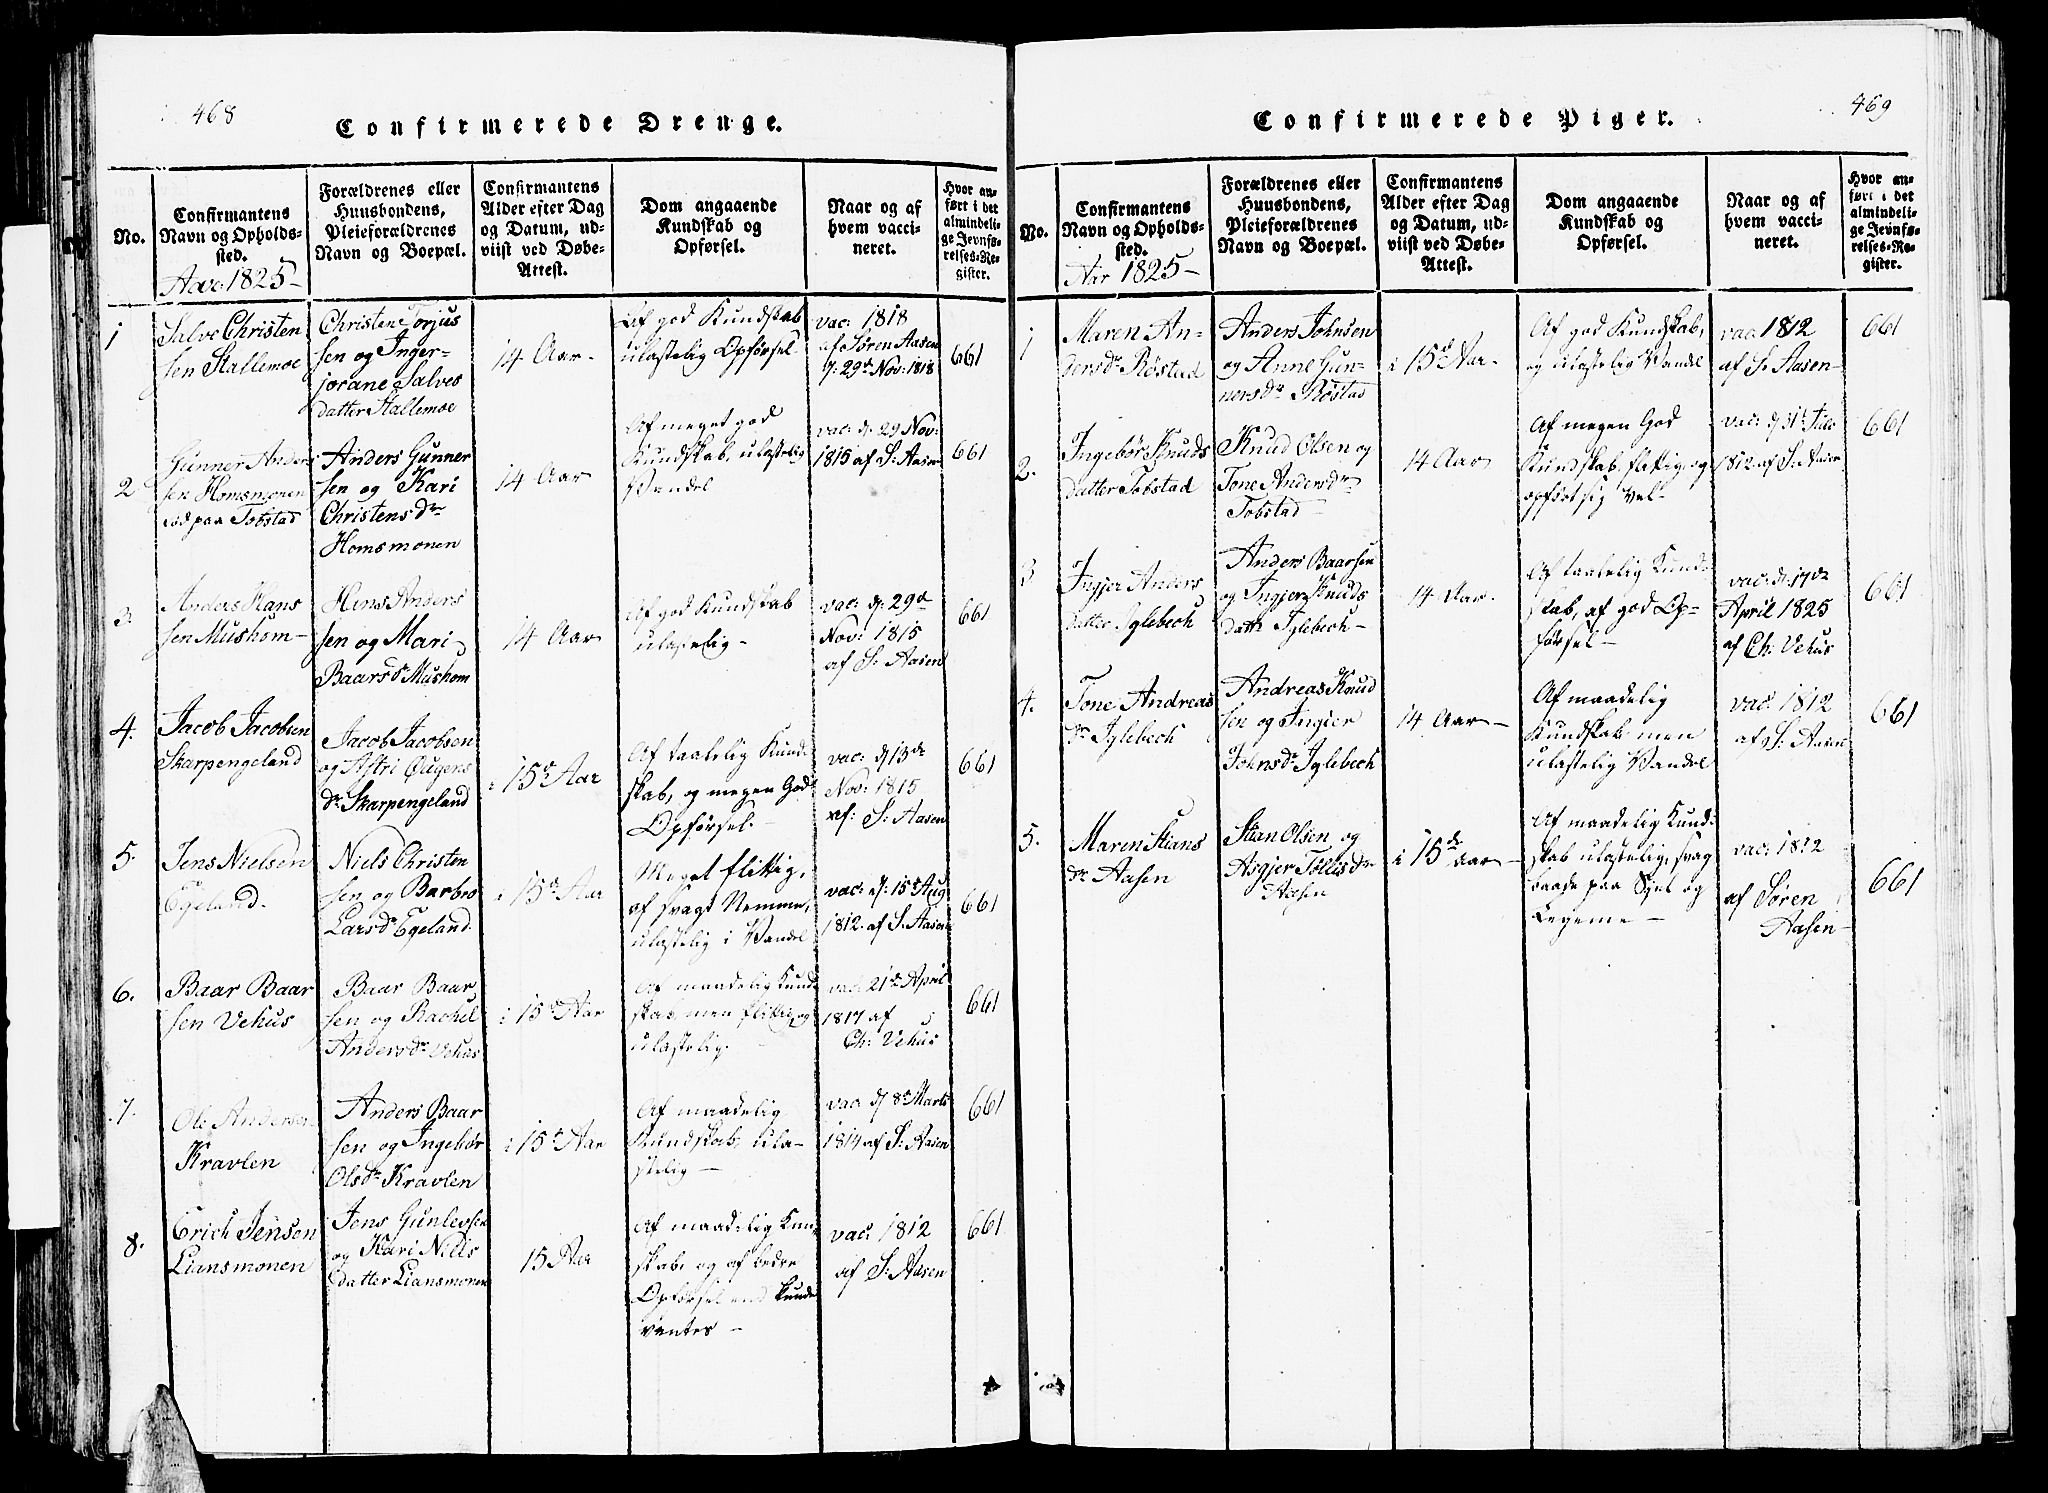 468
Confirmerede Drenge.
No.
Confirmantens
Navn og Opholds-
sted.
Aar 1825 -
Forældrenes eller
Huusbondens,
Pleieforældrenes
Navn og Boepæl.
Confirmantens
Alder efter Dag
og Datum, ud-
viist ved Døbe-
Attest.
Dom angaaende
Kundskab og
Opførsel.
Naar og af
hvem vacci-
neret.
Hvor an-
ført i det
almindeli-
ge Jevnfø-
relses-Re-
gister.
1
Salve Christen
sen Stallemoe
Christen Torjus
sen og Inger-
jorane Salves
datter Stallemoe
14 Aar -
Af god Kundskab
ulastelig Opførsel
vac: 1818
af Søren Aasen
d: 29de Nov: 1818
661
2
Gunner Anders
sen Homsmonen
paa Tobstad
Anders Gunner
sen og Kari
Christens dr
Homsmonen
14 Aar
Af meget god
Kundskab, ulastelig
Vandel
vac: d: 29 Nov:
1815 af S: Aasen
661
3.
Anders Hans
sen Mushom -
Hans Anders
sen og Mari
Baars dr Mushom
14 Aar
Af god Kundskab
ulastelig -
vac: d: 29de
Nov: 1815
af S: Aasen
661
4.
Jacob Jacobsen
Skarpengeland
Jacob Jacobsen
og Astri Øugens
dr Skarpengeland
i 15de Aar
Af taalelig Kund-
skab, og megen God
Opførsel. -
vac: d: 13de
Nov: 1815
af: S: Aasen
661
5.
Jens Nielsen
Egeland.
Niels Christen
sen og Barbro
Larsdr Egeland.
i 15de Aar
Meget flittig,
af svagt Nemme,
ulastelig i Vandel
vac: d: 15de Aug
1812. af S. Aasen
661
6.
Baar Baar
sen Vehus
Baar Baar
sen og Rachel
Anders dr Vehus
i 15de Aar
Af maadelig Kund
skab, men flittig og
ulastelig.
vac: 21de April
1817 af
Ch: Vehus
661
7.
Ole Anderson
Kravlen
Anders Baar
sen og Ingebør
Olsdr Kravlen
i 15de Aar
Af maadelig
Kundskab, ula-
stelig -
vac: d 8de Marts
1814 af S: Aasen
661
8.
Erich Jensen
Liansmonen
Jens Gunlevsen
og Kari Niels
datter Liansmonen
15 Aar
Af maadelig Kun-
skab, og af bedre
Opførsel end kunde
ventes -
vac: 1812
af S: Aasen
661
469
Confirmerede Piger.
No.
Confirmantens
Navn og Opholds-
sted.
Aar 1825 -
Forældrenes eller
Huusbondens,
Pleieforældrenes
Navn og Boepæl.
Confirmantens
Alder efter Dag
og Datum, ud-
viist ved Døbe-
Attest.
Dom angaaende
Kundskab og
Opførsel.
Naar og af
hvem vacci-
neret.
Hvor an-
ført i det
almindeli-
ge Jevnfø-
relses-Re-
gister.
1
Maren An-
dersdr Røstad
Anders Johnsen
og Anne Gun-
nersdr Røstad
i 15de Aar -
Af god Kundskab,
og ulastelig Vandel
vac: 1812
af S: Aasen -
661
2.
Ingebør Knuds
datter Tobstad
Knud Olsen og
Tone Andersdr
Tobstad -
14 Aar
Af megen God
Kundskab, flittig, og
opført sig vel -
vac: d 31te
1812. af S: Aasen
661
3
Ingjer Anders
datter Iglebech
Anders Baarsen
og Ingjer Knuds
dattr Iglebech -
14 Aar -
Af taalelig Kund-
skab, af god Op-
førsel -
vac: d: 17de
April 1825
af Ch: Vehus
661
4.
Tone Andreas
dr Iglebech
Andreas Knud
sen og Ingier
Johnsdr Iglebech
14 Aar -
Af maadelig
Kundskab men
ulastelig Vandel
vac: 1812
af S: Aasen
661
5.
Maren Stians
dr Aasen
Stian Olsen og
Asgjer Tollisdr
Aasen
i 15de Aar -
Af maadelig Kund-
skab ulastelig, svag
baade paa Sjel og
Legeme -
vac: 1812
af Søren
Aasen -
661